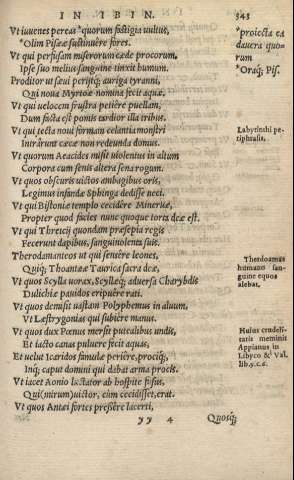 IN IBIN. 343
Vt iuuenes pereas *quorum fastigia vultus,
*Olim Pisææ sustinuêre fores.
Vt qui perfusam miserorum cæde procorum,
Ipse suo melius sanguine tinxit humum,
Proditor ut sæui perijtq; auriga tyranni,
Qui noua Myrtoæ nomina fecit aquæ,
Vt qui uelocem frustra petiêre puellam,
Dum facta est pomis tardior illa tribus.
Vt qui tecta noui formam celantia monstri
Intrârunt cæcæ non redeunda domus.
Vt quorum Aeacides misit uiolentus in altum
Corpora cum senis altera sena rogum.
Vt quos obscuris uictos ambagibus oris,
Legimus infandæ Sphinga dedisse neci.
Vt qui Bistoniæ templo cecidêre Mineruæ,
Propter quod facies nunc quoque torta deæ est.
Vt qui Threicij quondam præsepia regis
Fecerunt dapibus, sanguinolenta suis.
Therodamanteos ut qui sensêre leones,
Quiq; Thoantææ Taurica sacra deæ,
Vt quos Scylla uorax, Scyllæq; aduersa Charybdis
Dulichiæ pauidos eripuêre rati.
Vt quos demisit uastam Polyphemus in aluum,
Vt Læstrygonias qui subiêre manus.
Vt quos dux Pœnus mersit putealibus undis,
Et iacto canas puluere fecit aquas,
Et uelut Icaridos famulæ periêre, prociq́;,
Inq; caput domini qui dabat arma procis.
Vt iacet Aonio luctator ab hospite fusus,
Qui(mirum)uictor, cùm cecidisset, erat.
Vt quos Antæi fortes pressêre lacerti,
yy 4 Quosq́;
*proiecta ca
dauera quo-
rum
*Oraq́; Pis.
Labyrinthi pe
riphrasis.
Theodamas
humano san-
guine equos
alebat.
Huius crudeli-
tatis meminit
Appianus in
Libyco & Val.
lib.9.c.2.